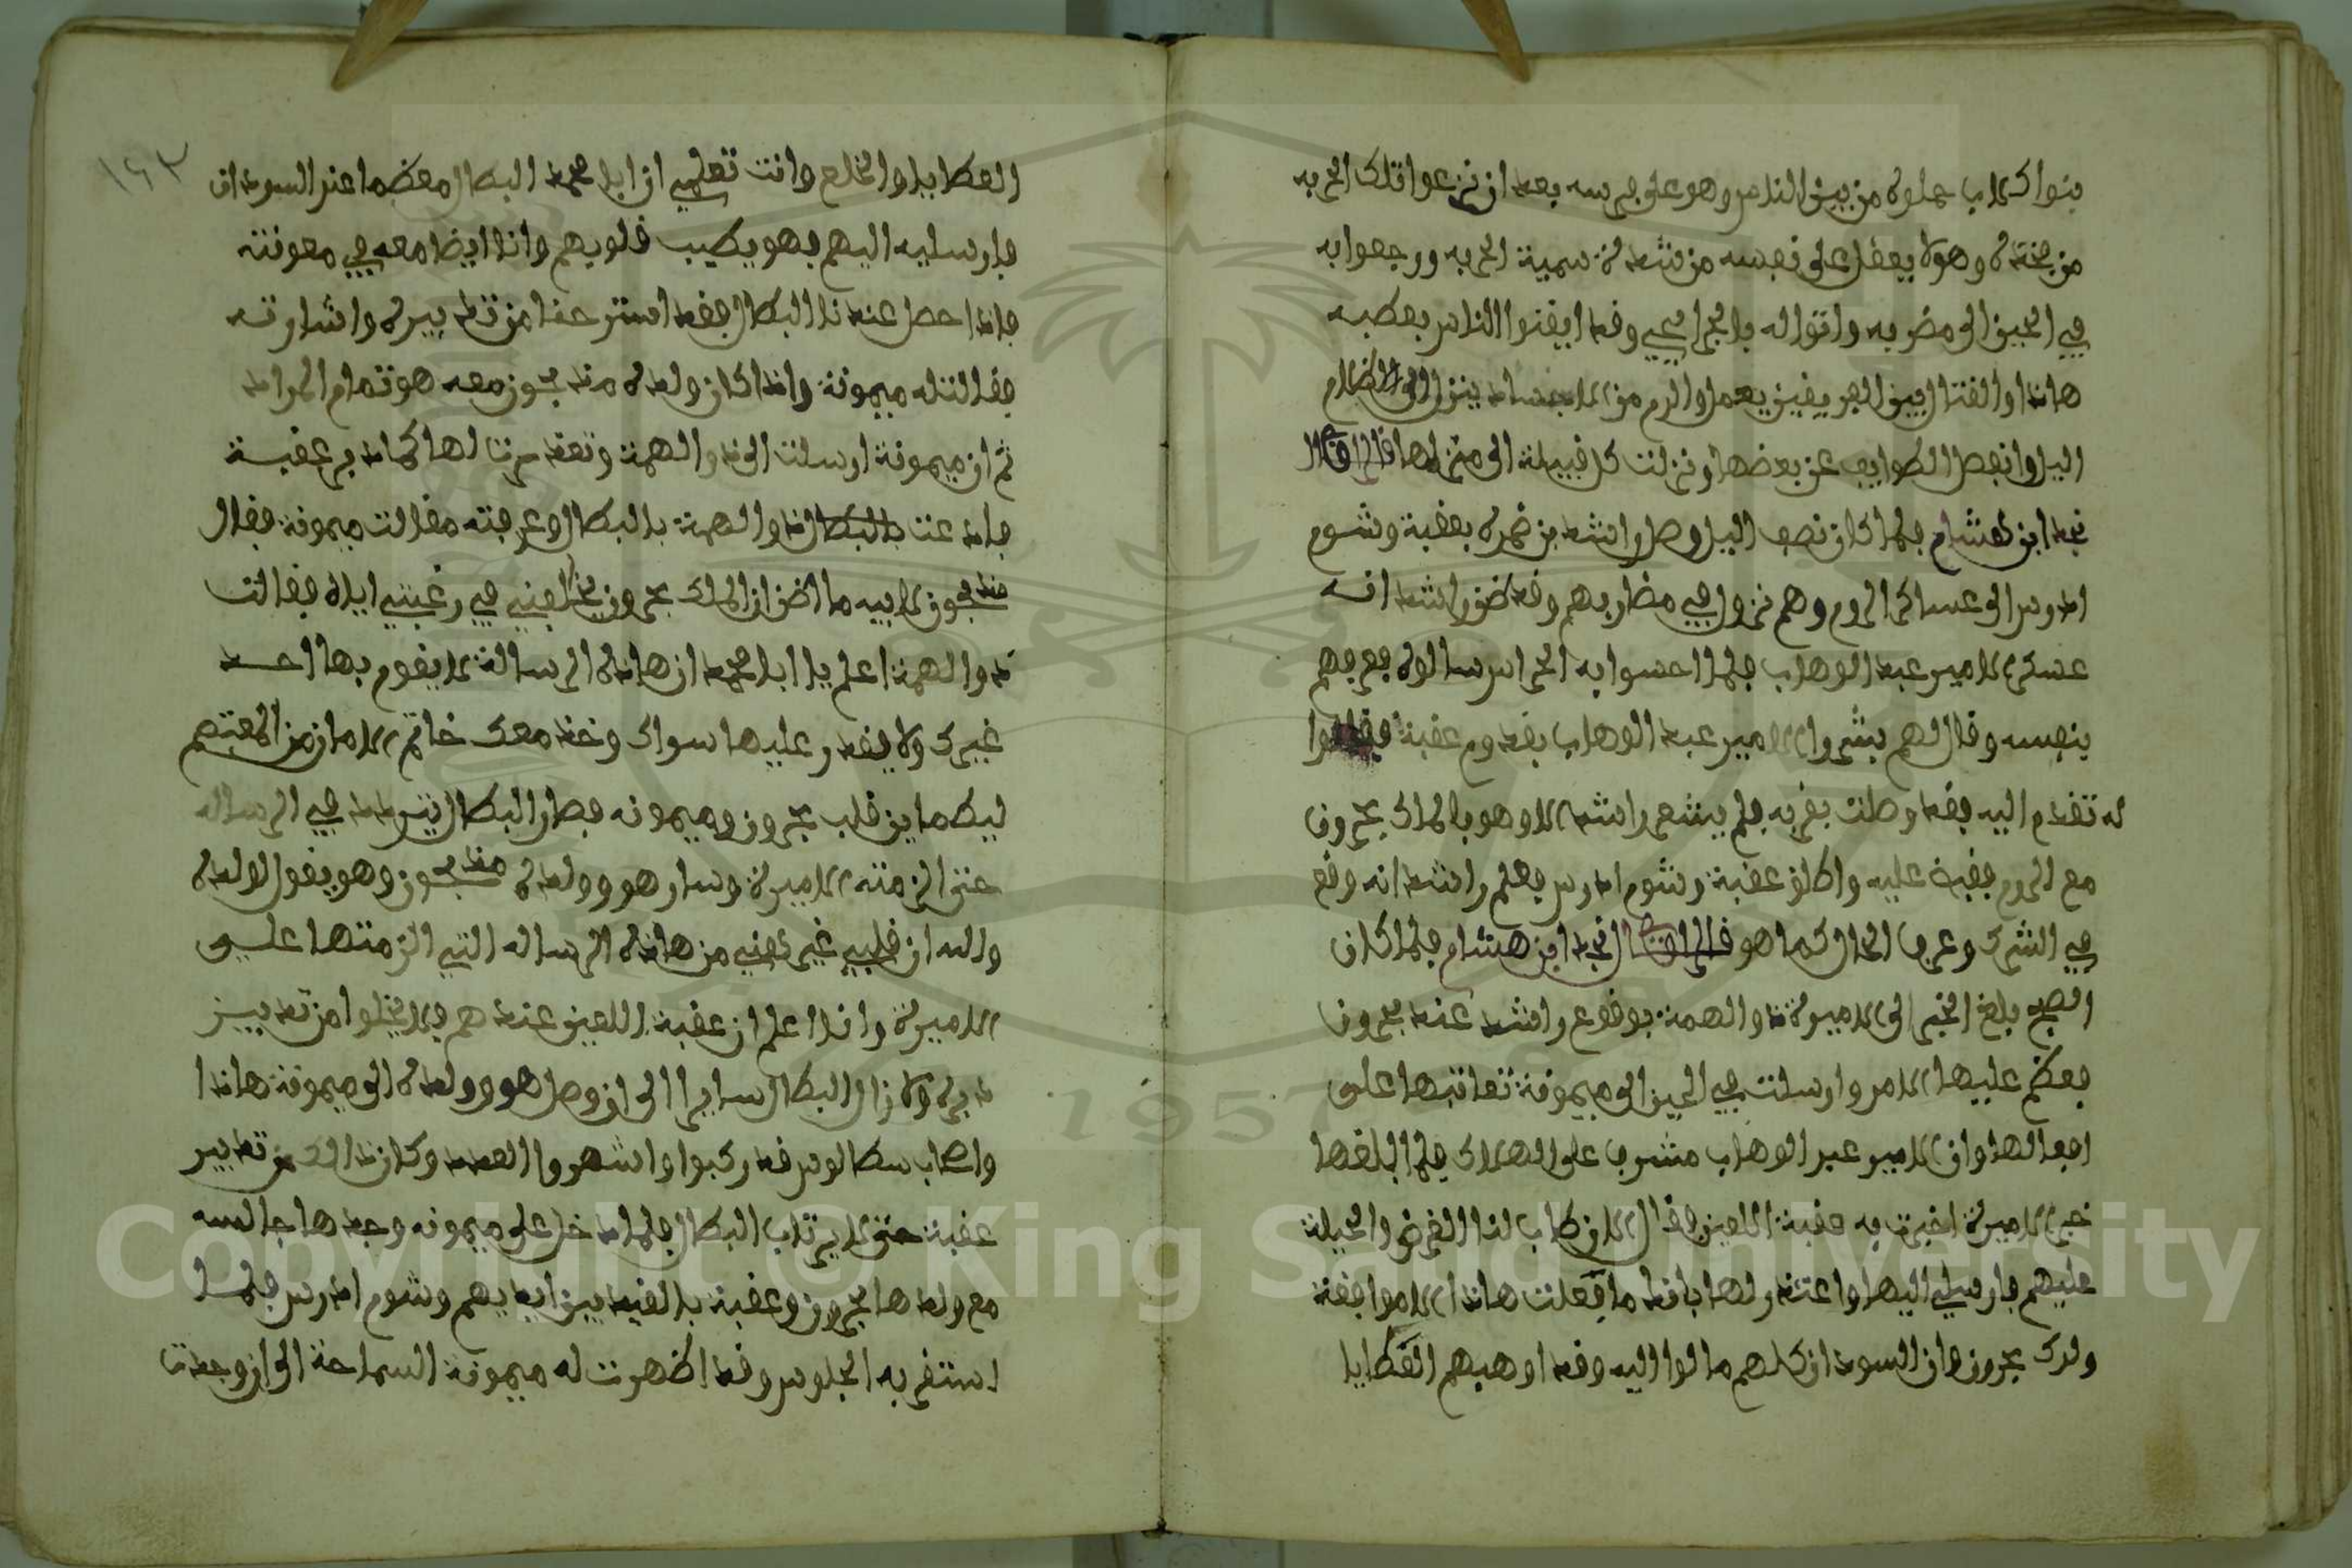 بنوا كلاب حملوه من بين الناس وهو على فرسه بعد ان نزعوا تلك الحربه
من فخذه وهو لا يعقل على نفسه من شدة سمية الحربه ورجعوا به
في الحين الى مضربه واتوا له بالجرايحي وقد ايقنوا الناس بعطبه
هاذا والقتال بين الفريقين يعمل والدم من الاجساد ينزل الى الظلام
اليل وانفصل الطوايف عن بعضها ونزلت كل قبيلة الى منزلها قال الراوي
نجد ابن هشام فلما كان نصف اليل وصل راشد بن ضمره بعقبة وشوم
ادرس الى عساكر الروم وهم نزول في مضاربهم وقد ظن راشد انه
عسكر الامير عبد الوهاب فلما احسوا به الحراس سالوه فعرفهم
بنفسه وقال لهم بشروا الامير عبد الوهاب بقدوم عقبة فقالوا
له تقدم اليه فقد وصلت بقربه فلم يشعر راشد الا وهو بالملك بحرون
مع الروم فقبض عليه واطلق عقبة وشوم ادرس فعلم راشد انه وقع
في الشرك وعرف الحال كما هو قال الراوي نجد ابن هشام فلما كان
الصبح بلغ الخبر الى الاميرة ذوالهمة بوقوع راشد عند بحرون
فعظم عليها الامر وارسلت في الحين الى ميمونة تعاتبها على
افعالها وان الامير عبد الوهاب مشرف على الهلاك فلما ابلغها
خبر الاميرة اخبرت به عقبة اللعين فقال الان طاب لنا الغرض والحيلة
عليهم فارسلي اليها واعتذر لها بانك ما فعلت هاذا الا موافقة
ولدك بحرون وان السودان كلهم مالوا اليه وقد اوهبهم العطايا
١٦٣
العطايا والخلع وانت تعلمي ان ابا محمد البطال معظما عند السودان
فارسليه اليهم فهو يطيب قلوبهم وانا ايضا معه في معونته
فاذا حصل عندنا البطال فقد استرحنا من تدبيره واشارته
فقالت له ميمونة واذا كان ولده مذبحون معه هو تمام المراد
ثم ان ميمونة ارسلت الى ذوالهمة وتعذرت لها كما دبر عقبة
فادعت بالبطال ذوالهمة بالبطال وعرفته مقالت ميمونة فقال
مذبحون لابيه ما اظن ان الملك بحرون يخالفني في رغبتي اياه فقالت
ذوالهمة اعلم يا ابا محمد ان هاذه الرسالة لا يقوم بها احد
غيرك ولا يقدر عليها سواك وخذ معك خاتم الامان من المعتصم
ليطماين قلب بحرون وميمونه فصار البطال يتردد في الرساله
حتى الزمته الاميرة وسار هو وولده مذبحون وهو يقول لولده
والله ان قلبي غير مهني من هاذه الرساله التي الزمتها علي
الاميرة وانا اعلم ان عقبة اللعين عندهم فلا يخلوا من تدبيز
دبره ولا زال البطال سايرا الى ان وصل هو وولده الى ميمونة هاذا
واصحاب سطالوس قد ركبوا واشهروا العدد وكان ذالك من تدبير
عقبة حتى لا يرتاب البطال فلما دخل على ميمونه وجدها جالسه
مع ولدها بحرون وعقبة بالقيد بين ايديهم وشوم ادرس فلما
استقر به الجلوس وقد اظهرت له ميمونة السماحة الى ان وجدت